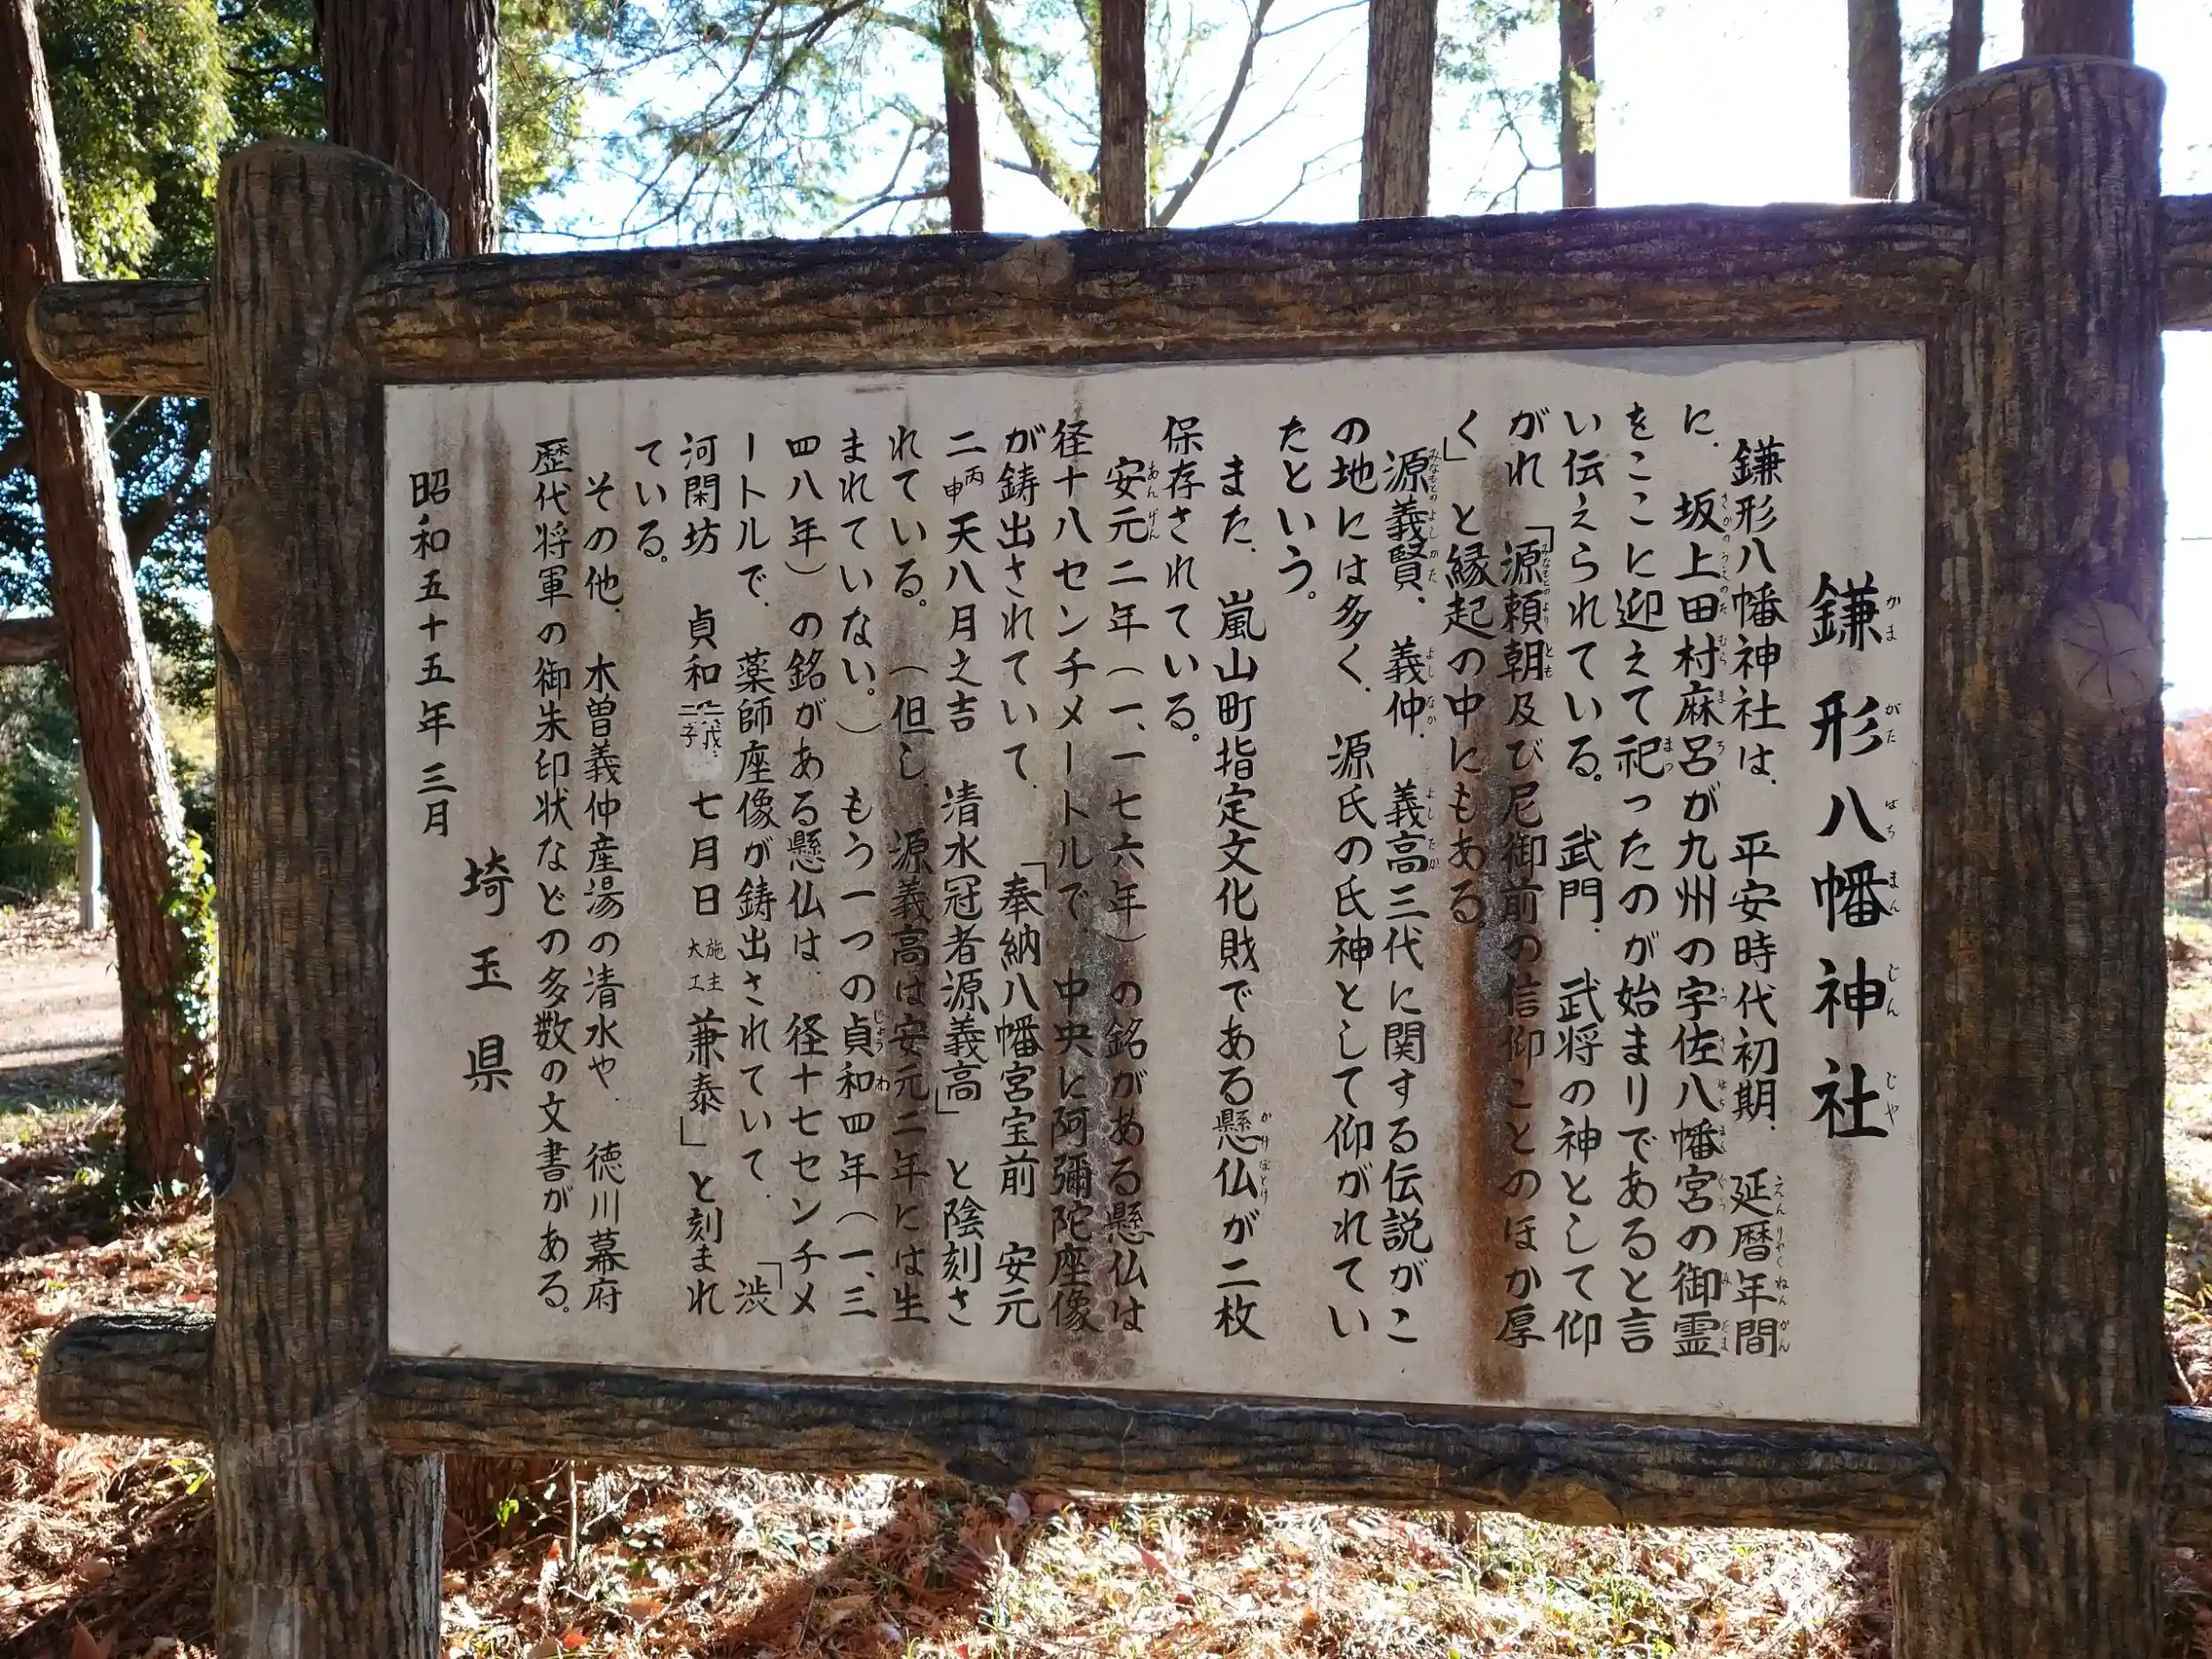 鎌形八幡神社
鎌形八幡神社は、平安時代初期、延暦年間
に、坂上田村麻呂が九州の宇佐八幡宮の御霊
をここに迎えて祀ったのが始まりであると言
い伝えられている。武門、武将の神として仰
がれ「源頼朝及び尼御前の信仰ことのほか厚
く」と縁起の中にもある。
源義賢、義仲、義高三代に関する伝説がこ
の地には多く、源氏の氏神として仰がれてい
たという。
また、嵐山町指定文化財である懸仏が二枚
保存されている。
安元二年（一、一七六年）の銘がある懸仏は
径十八センチメートルで、中央に阿彌陀座像
が鋳出されていて、「奉納八幡宮宝前 安元
二丙申天八月之吉 清水冠者源義高」と陰刻さ
れている。（但し、源義高は安元二年には生
まれていない。）もう一つの貞和四年（一、三
四八年）の銘がある懸仏は、径十七センチメ
ートルで、薬師座像が鋳出されていて、「渋
河閑坊 貞和 戊子 七月日 施主大工 兼泰」と刻まれ
ている。
その他、木曽義仲産湯の清水や、徳川幕府
歴代将軍の御朱印状などの多数の文書がある。
昭和五十五年三月
埼玉県